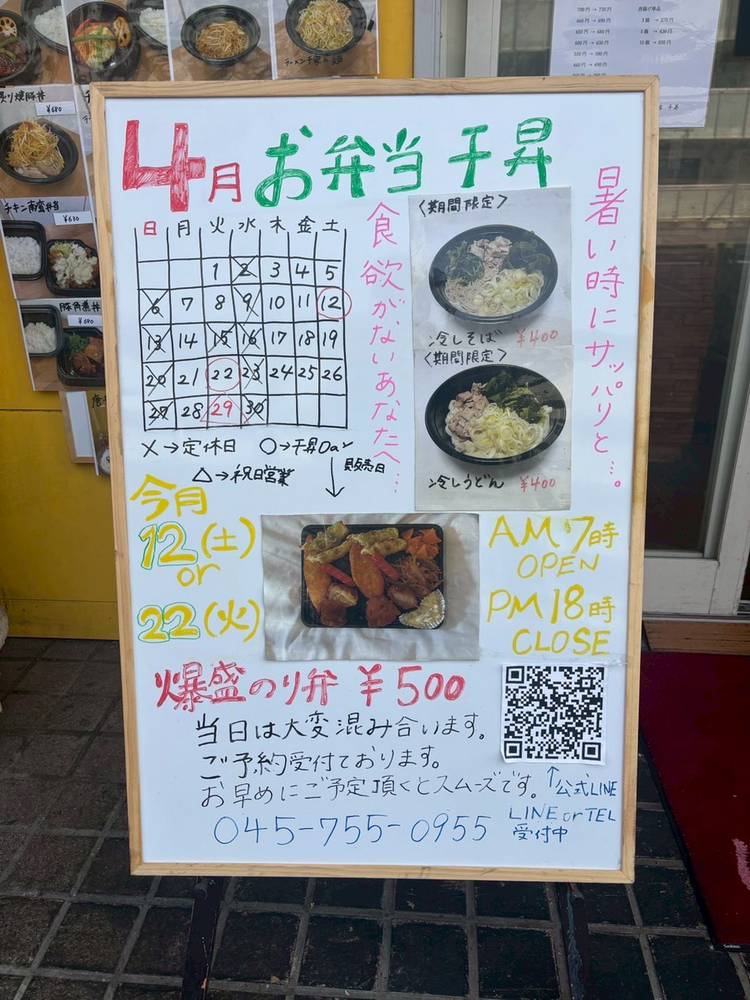 炙り焼豚丼
¥680
チキン南蛮弁当
¥630
豚角煮丼
¥680
4月 お弁当 千昇
日 月 火 水 木 金 土
1 2 3 4 5
6 7 8 9 10 11 12
13 14 15 16 17 18 19
20 21 22 23 24 25 26
27 28 29 30
×→定休日 ○→千昇Day
△→祝日営業
販売日
食欲がないあなたへ…
暑い時にサッパリと…。
〈期間限定〉
冷しそば ¥400
〈期間限定〉
冷しうどん ¥400
今月
12(土)
or
22(火)
AM 7時
OPEN
PM 18時
CLOSE
爆盛のり弁 ¥500
当日は大変混み合います。
ご予約受付ております。
お早めにご予定頂くとスムーズです。
↑公式LINE
LINE or TEL
受付中
045-755-0955